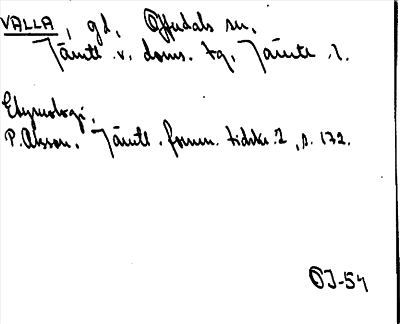 VALLA, gd, Offerdals sn,
Jämtl. v. doms. tg, Jämtl. l.
Etymologi,
P. Olsson, Jämtl. fornm. tidskr. 2, s. 172.
OJ-54